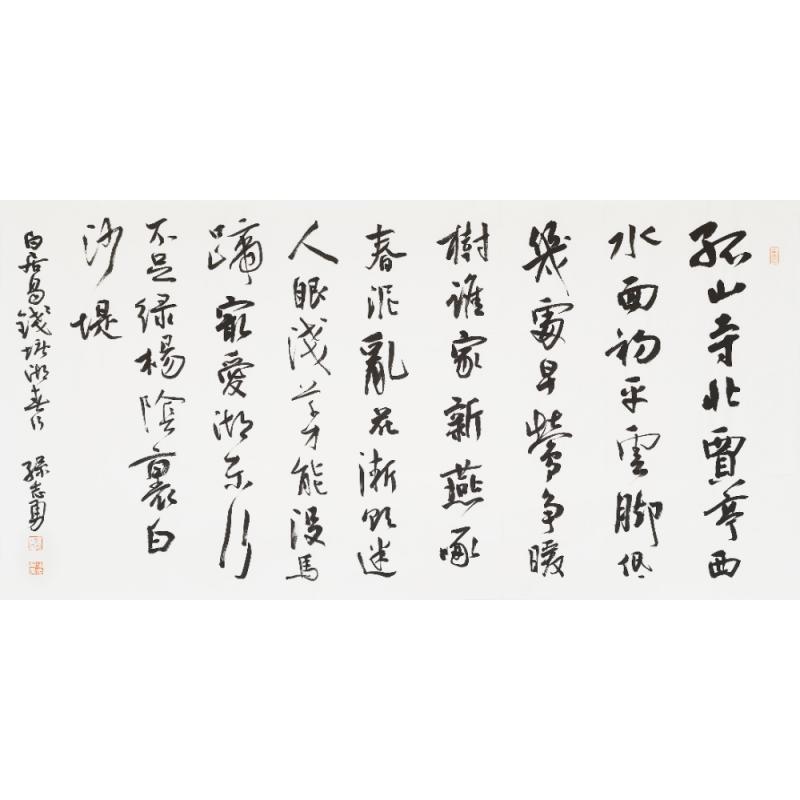 孤山寺北賈亭西
水面初平雲脚低
幾處早鶯争暖
樹誰家新燕啄
春泥亂花漸欲迷
人眼淺草才能没馬
蹄最愛湖東行
不足绿楊陰裏白
沙堤
白居易錢塘湖春行 孫志勇